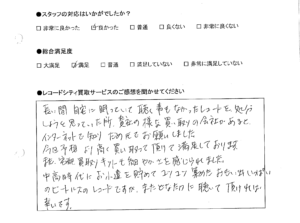 ●スタッフの対応はいかがでしたか?
□非常に良かった ☑良かった □普通 □良くない □非常に良くない
●総合満足度
□大満足 ☑満足 □普通 □満足していない □非常に満足していない
●レコードシティ買取サービスのご感想を聞かせてください
長い間自宅に眠っていて聴く事もなかったレコードを、処分
しようと思っていた所、貴社の様な買い取りの会社がある事を
インターネットで知り ためしてお願いしました
今回予想より高く買い取って頂けて満足しております
中高時代にお小遣を貯めてコツコツ集めた おもい出いっぱい
のビートルズのレコードですが、またどなたかに聴いて頂ければ
幸いです。